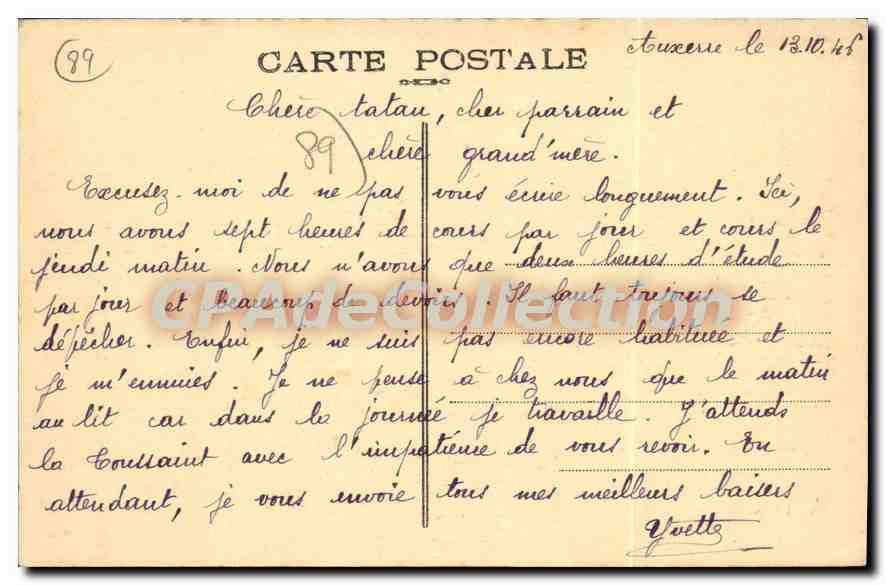 89
CARTE POSTALE
Auxerre le 13.10.45
Chère tatau, cher parrain et
89
chère grand'mère.
Excusez-moi de ne pas vous écrire longuement. Ici,
nous avons sept heures de cours par jour et cours le
jeudi matin. Nous n'avons que deux heures d'étude
par jour et beaucoup de devoirs. Il faut toujours se
CPAdeCollection
dépécher. Enfin, je ne suis pas encore habituée et
je m'ennuies. Je ne pense à chez nous que le matin
au lit car dans la journée je travaille. J'attends
la Toussaint avec l'impatience de vous revoir. En
attendant, je vous envoie tous mes meilleurs baisers
Yvette